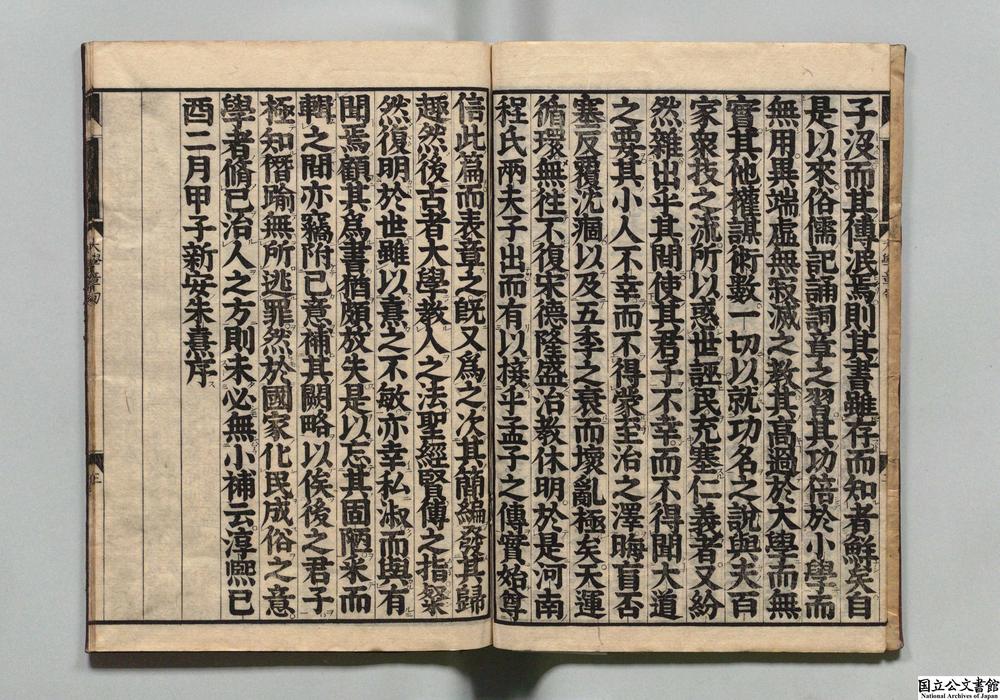 子沒而其傳泯焉則其書雖存而知者鮮矣自
是以來俗儒記誦詞章之習其功倍於小學而
無用異端虛無寂滅之教其高過於大學而無
實其他權謀術數一切以就功名之說與夫百
家衆技之流所以惑世誣民充塞仁義者又紛
然雜出乎其間使其君子不幸而不得聞大道
之要其小人不幸而不得蒙至治之澤晦盲否
塞反覆沈痼以及五季之衰而壞亂極矣天運
循環無往不復宋德隆盛治教休明於是河南
程氏兩夫子出而有以接乎孟子之傳實始尊
信此篇而表章之既又爲之次其簡編發其歸
趣然後古者大學教人之法聖經賢傳之指粲
然復明於世雖以熹之不敏亦幸私淑而與有
聞焉顧其爲書猶頗放失是以忘其固陋采而
輯之間亦竊附己意補其闕略以俟後之君子
極知僭踰無所逃罪然於國家化民成俗之意
學者脩己治人之方則未必無小補云淳熙己
酉二月甲子新安朱熹序
大學章句
国立公文書館
National Archives of Japan